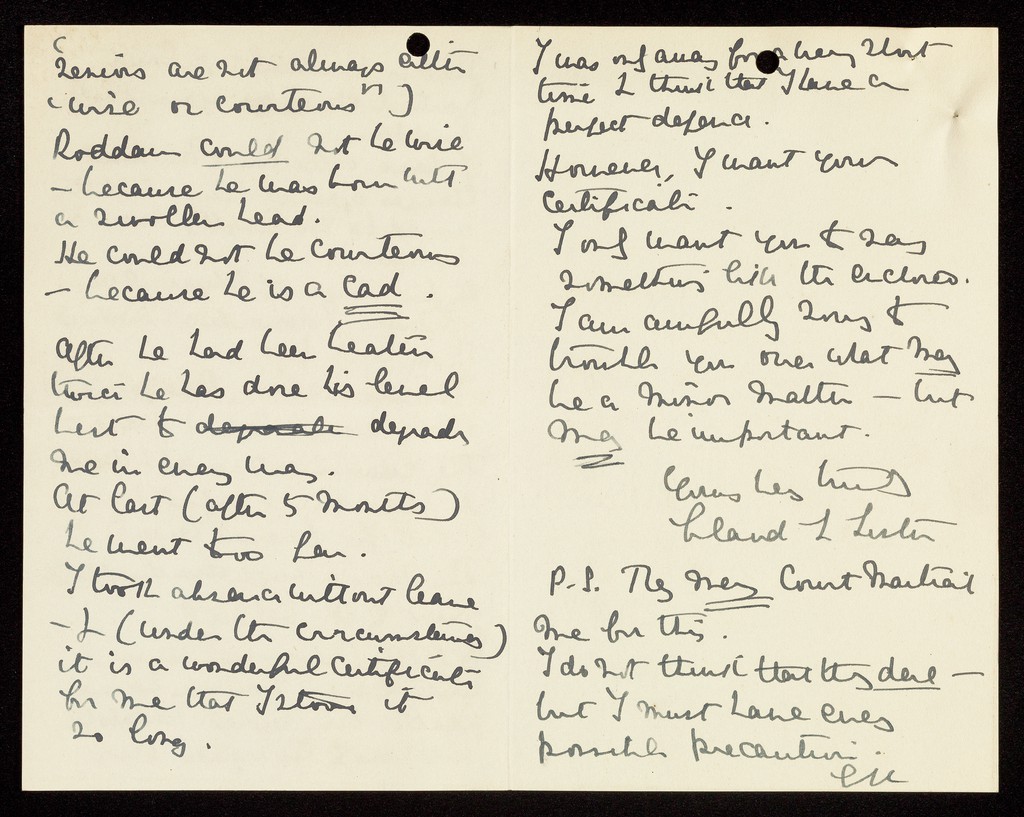 (
Seniors are not always either
"wise or courteous")
Roddam could not be wise
– because he was born with
a swollen head.
He could not be courteous
– because he is a cad.
After he had been beaten
twice he has done his level
best to degrade
me in every way.
At last (after 5 months)
he went too far.
I took absence without leave
– & (under the circumstances)
it is a wonderful certificate
for me that I stood it
so long.
I was only away for a very short
time & think that I have a
perfect defence.
However, I want your
certificate.
I only want you to say
something like the enclosed.
I am awfully sorry to
trouble you over what may
be a minor matter – but
may be important.
Yours very truly
Claud L Lister
P.S. They may Court Martial
me for this.
I do not think that they dare –
but I must have every
possible precaution.